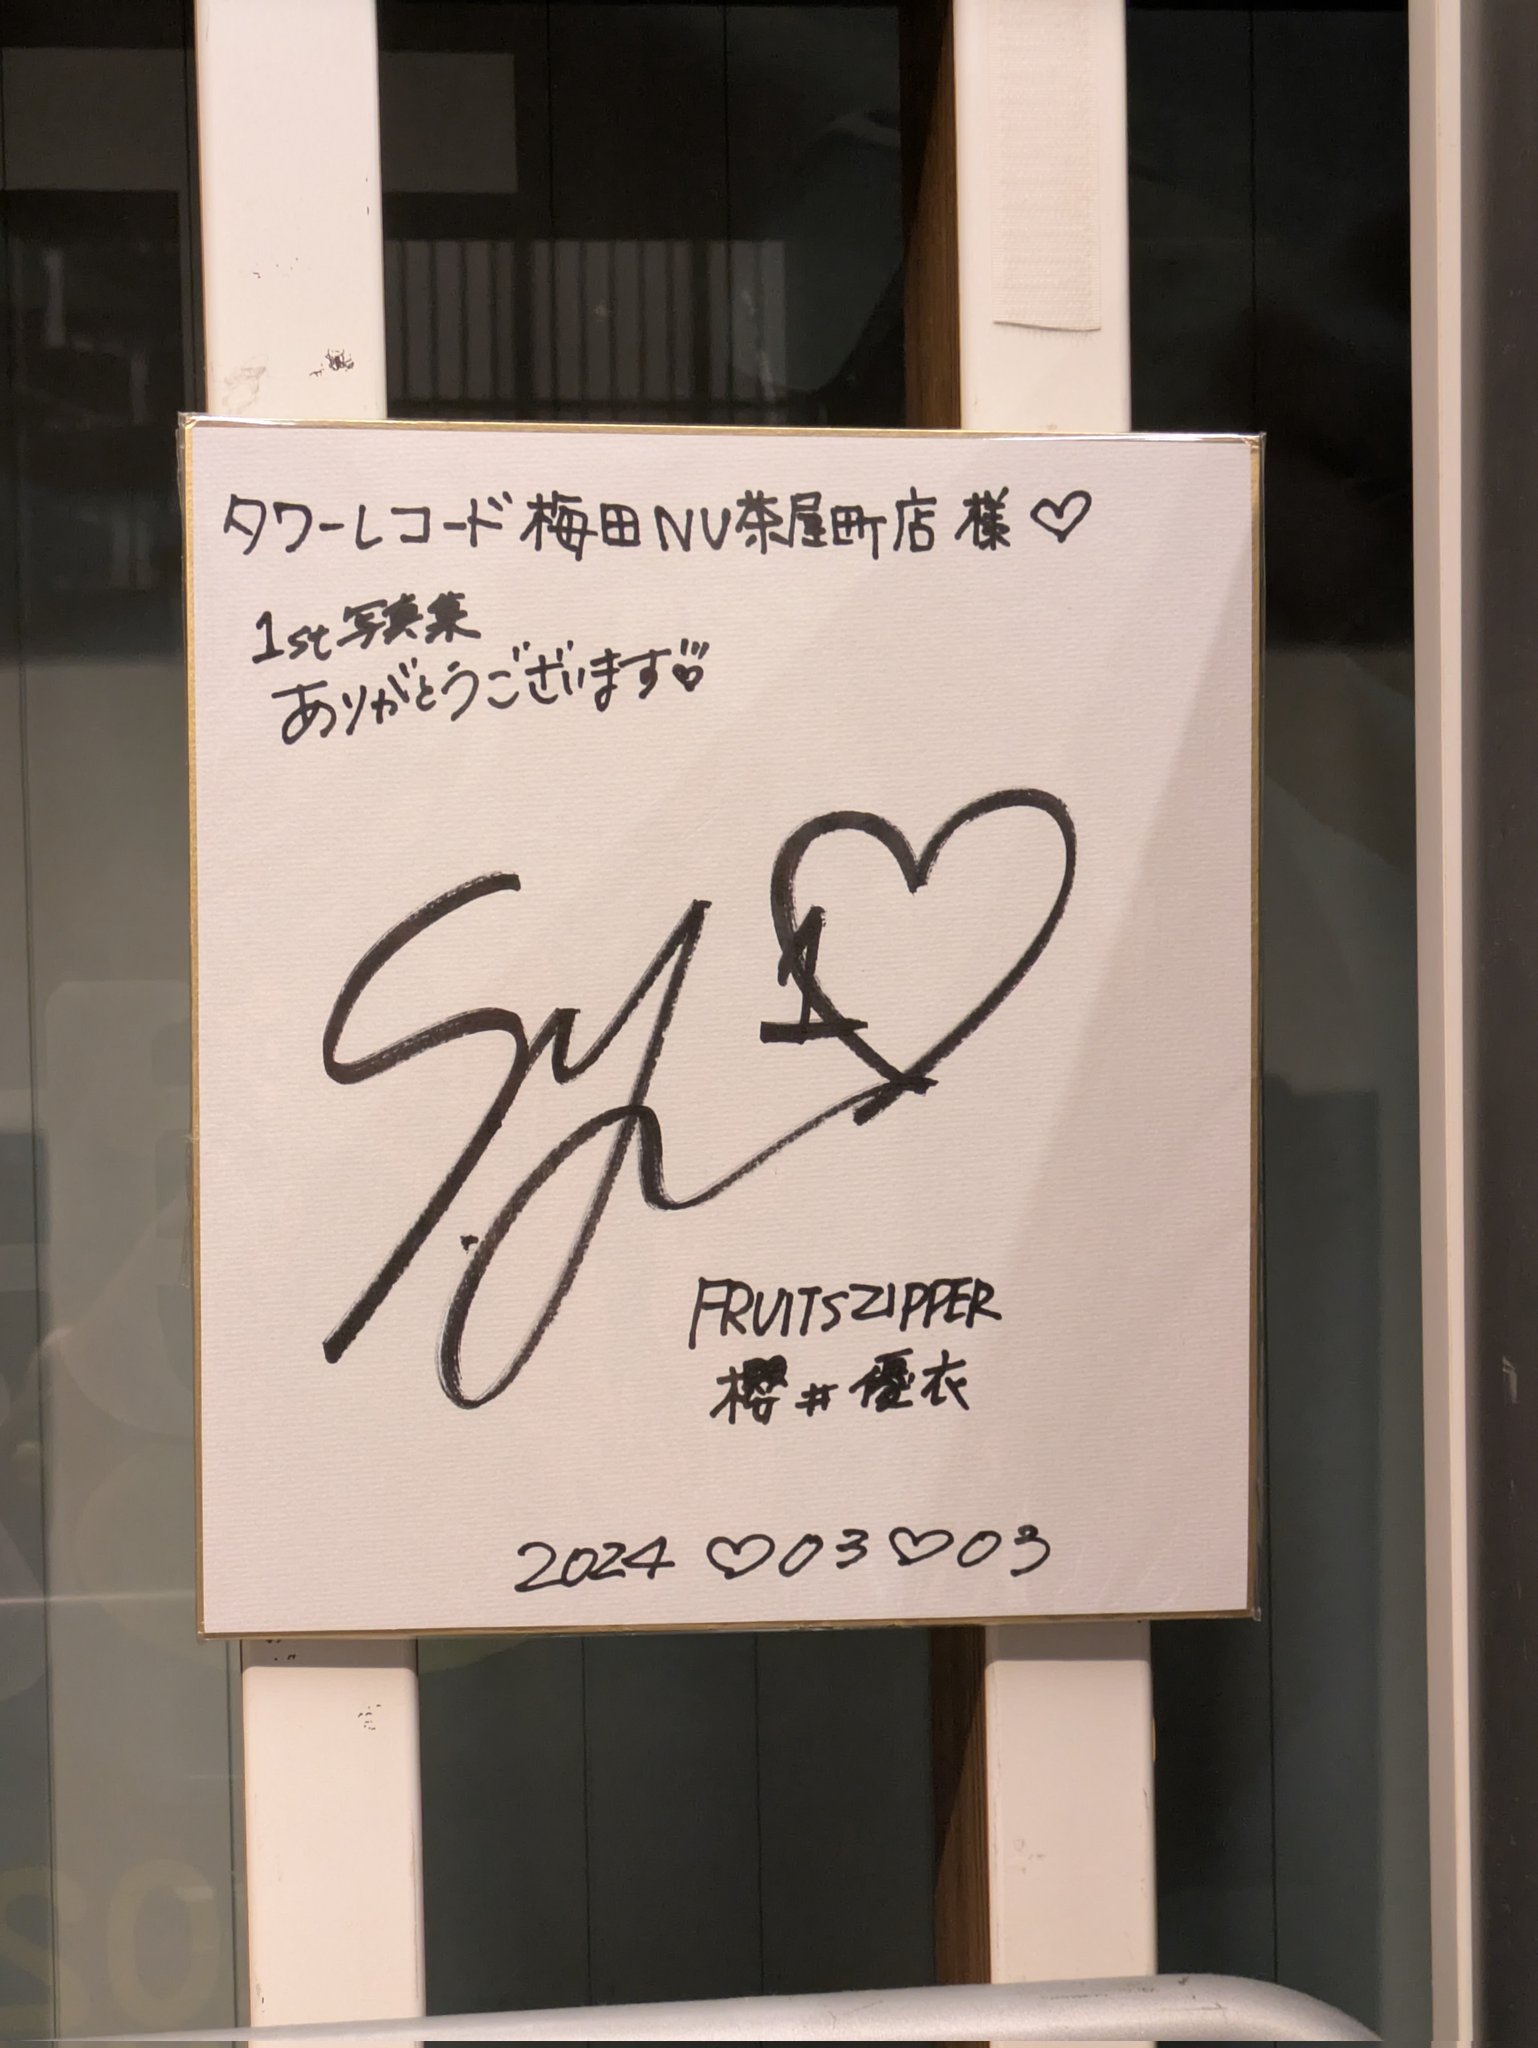 タワーレコード梅田NU茶屋町店 様♡
1st写真集
ありがとうございます♡
FRUITSZIPPER
櫻井優衣
2024♡03♡03